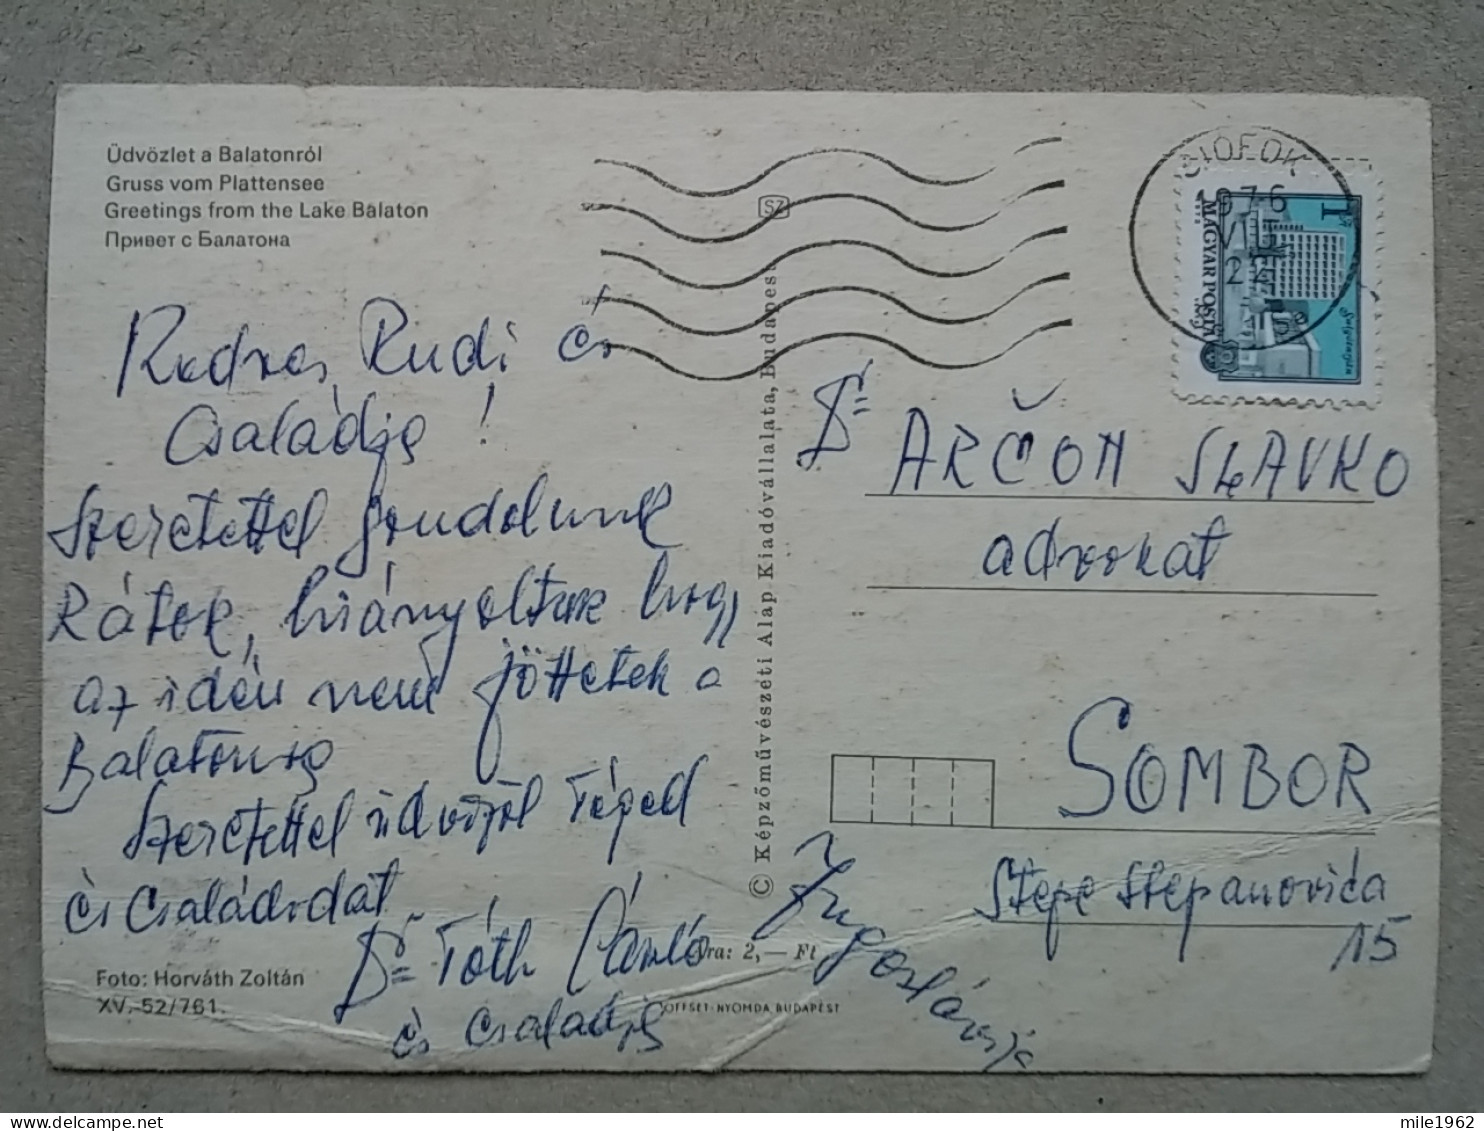 Üdvözlet a Balatonról
Gruss vom Plattensee
Greetings from the Lake Balaton
Привет с Балатона
Kedves Rudi és
Családja!
Szeretettel gondolunk
Rátok, hiányoltuk hogy
az idén nem jöttetek a
Balatonra
Szeretettel üdvözöl Téged
és Családodat
Dr Tóth László
és Családja
Foto: Horváth Zoltán
XV.-52/761.
© Képzőművészeti Alap Kiadóvállalata, Budapest
SZ
Ára: 2,— Ft
OFFSET-NYOMDA BUDAPEST
SIOFOK
1976
VII
22
1
MAGYAR POSTA
Dr ARČON SLAVKO
advokat
SOMBOR
Stepe Stepanovića
15
Jugoszlávia
mile1962